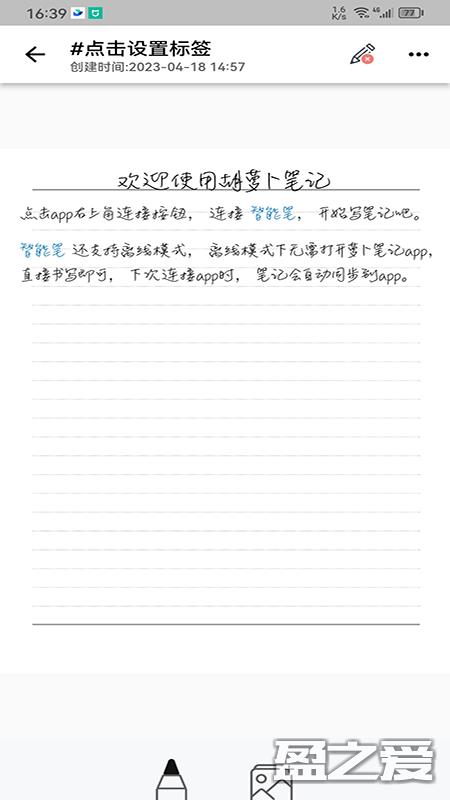 16:39
1.6
K/s
4G
77
#点击设置标签
创建时间:2023-04-18 14:57
欢迎使用胡萝卜笔记
点击app右上角连接按钮， 连接 智能笔， 开始写笔记吧。
智能笔 还支持离线模式， 离线模式下无需打开萝卜笔记app，
直接书写即可， 下次连接app时， 笔记会自动同步到app。
盈之爱